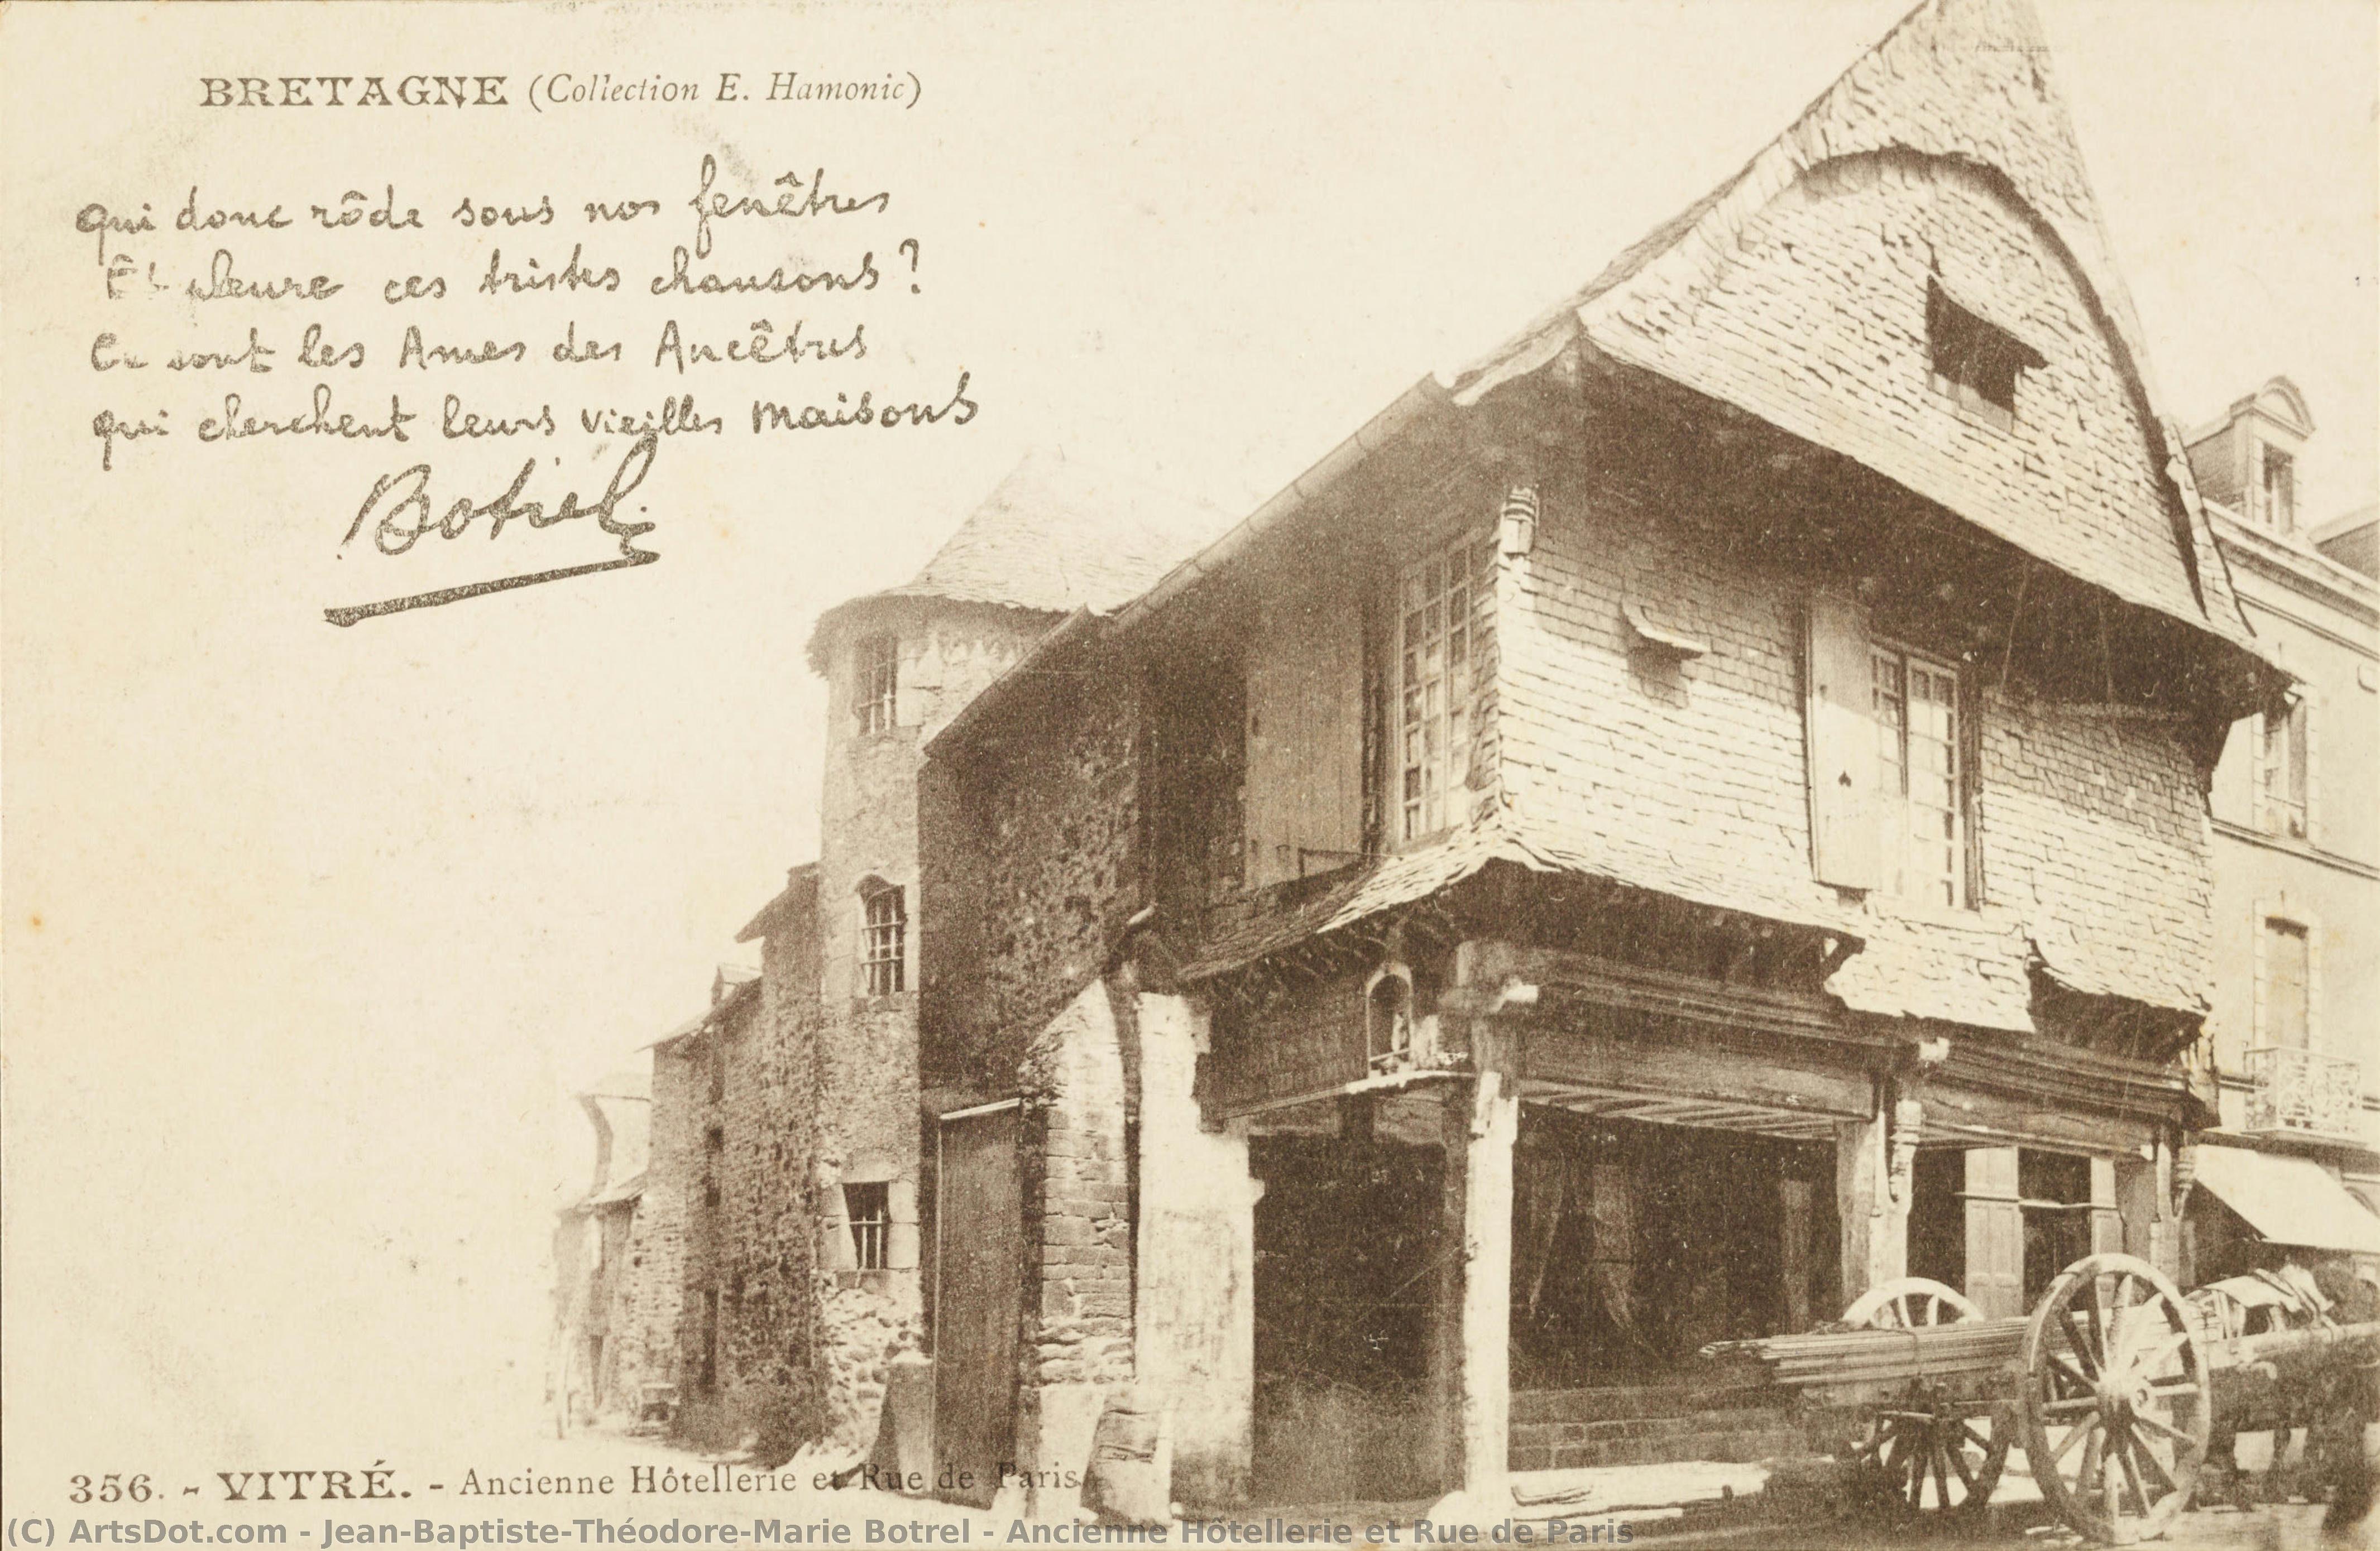 BRETAGNE (Collection E. Hamonic)
Qui donc rôde sous nos fenêtres
Et pleure ces tristes chansons ?
Ce sont les Ames des Ancêtres
qui cherchent leurs vieilles maisons
Botrel
356. - VITRÉ. - Ancienne Hôtellerie et Rue de Paris
(C) ArtsDot.com - Jean-Baptiste-Théodore-Marie Botrel - Ancienne Hôtellerie et Rue de Paris